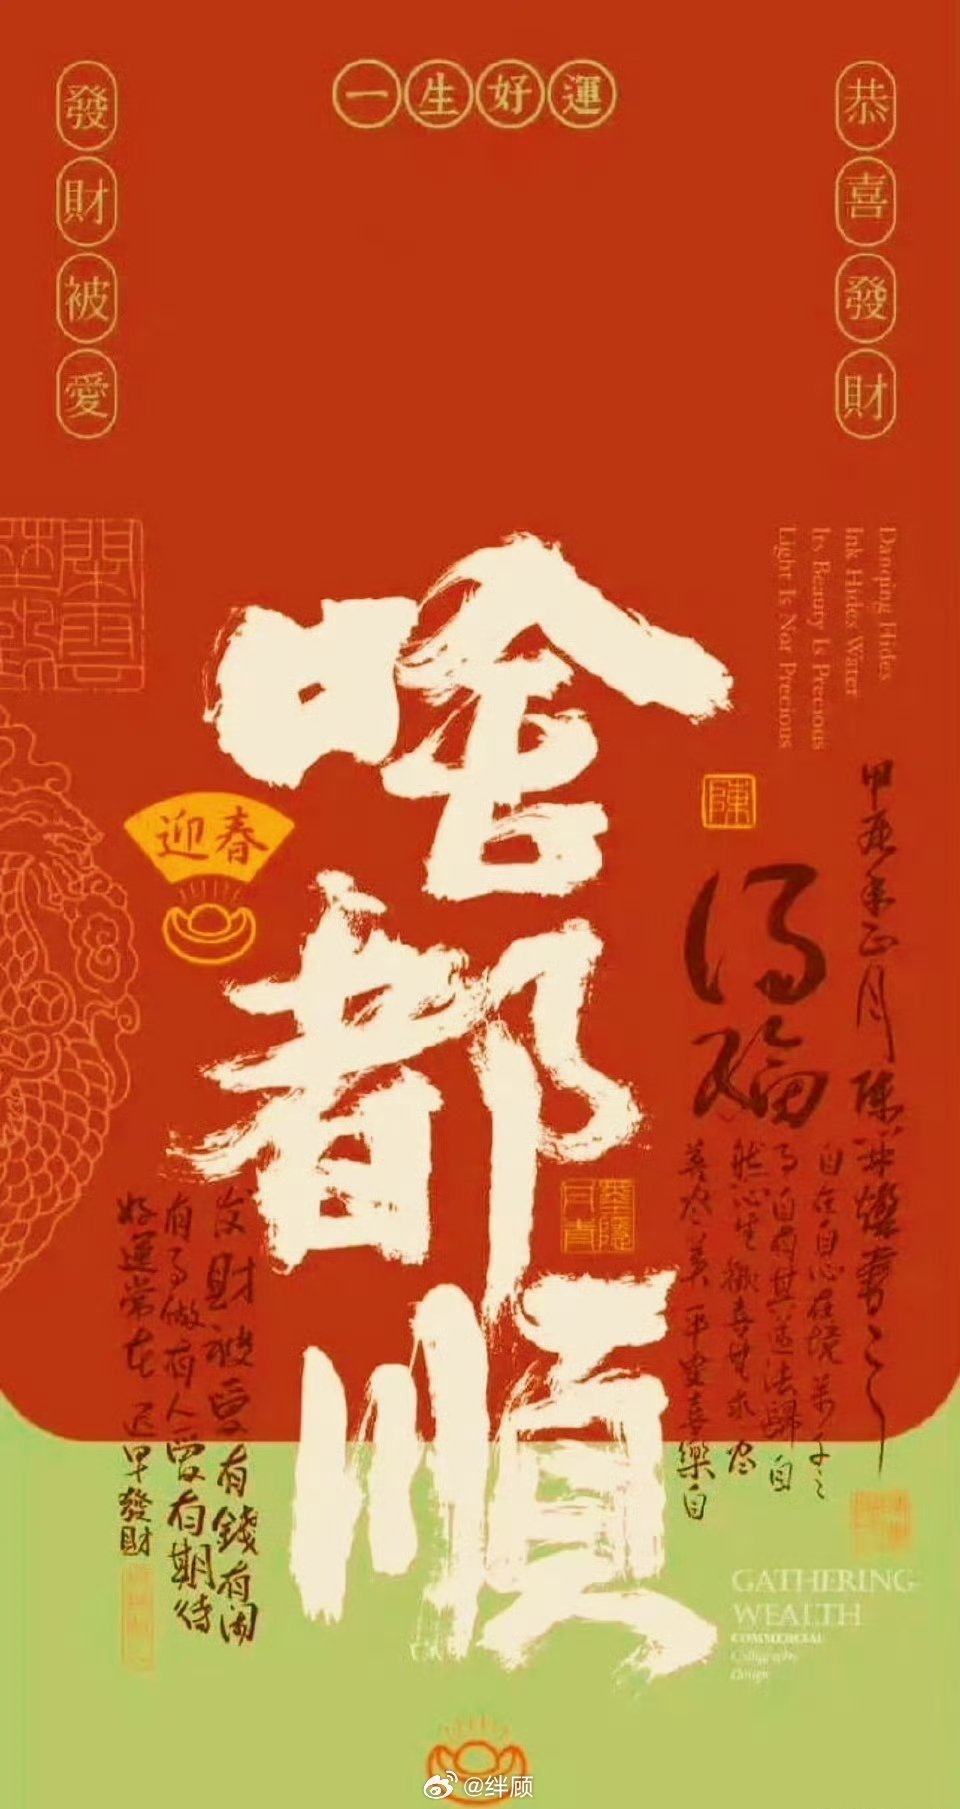 一生好運
發財被愛
恭喜發財
Danqing Hides
Ink Hides Water
Its Beauty Is Precious
Light Is Not Precious
啥都順
迎春
陳
得福
甲辰年正月陳
自在自心在境
自
然心生歡喜
平安喜樂自
发財被愛有錢有闲
有事做有人愛有期待
好運常在迟早發財
GATHERING
WEALTH
COMMERCIAL
Calligraphy
Design
@绊顾